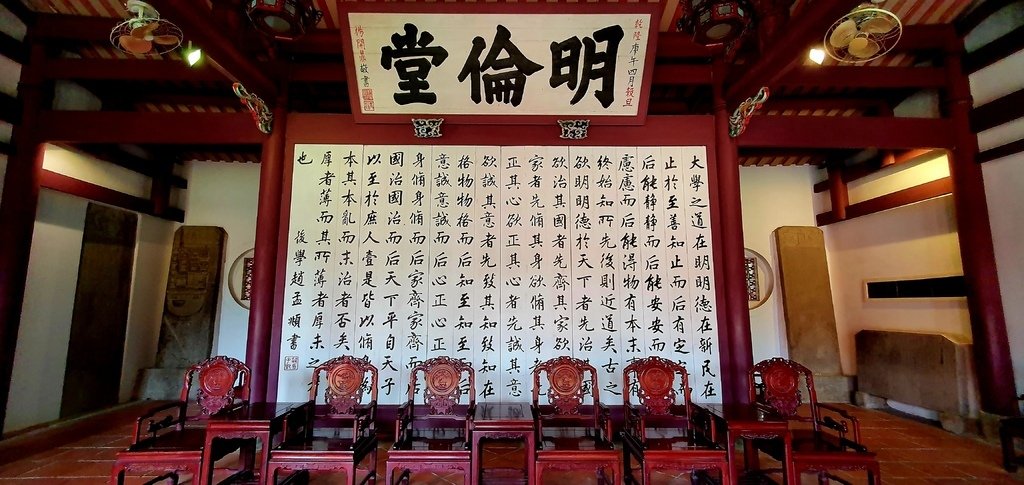 明倫堂
乾隆庚午四月穀旦
楊開鼎敬書
大學之道在明明德在新民在
止於至善知止而后有定定而
后能靜靜而后能安安而后能
慮慮而后能得物有本末事有
終始知所先後則近道矣古之
欲明明德於天下者先治其國
欲治其國者先齊其家欲齊其
家者先脩其身欲脩其身者先
正其心欲正其心者先誠其意
欲誠其意者先致其知致知在
格物物格而后知至知至而后
意誠意誠而后心正心正而后
身脩身脩而后家齊家齊而后
國治國治而后天下平自天子
以至於庶人壹是皆以脩身為
本其本亂而末治者否矣其所
厚者薄而其所薄者厚未之有
也
後學趙孟頫書